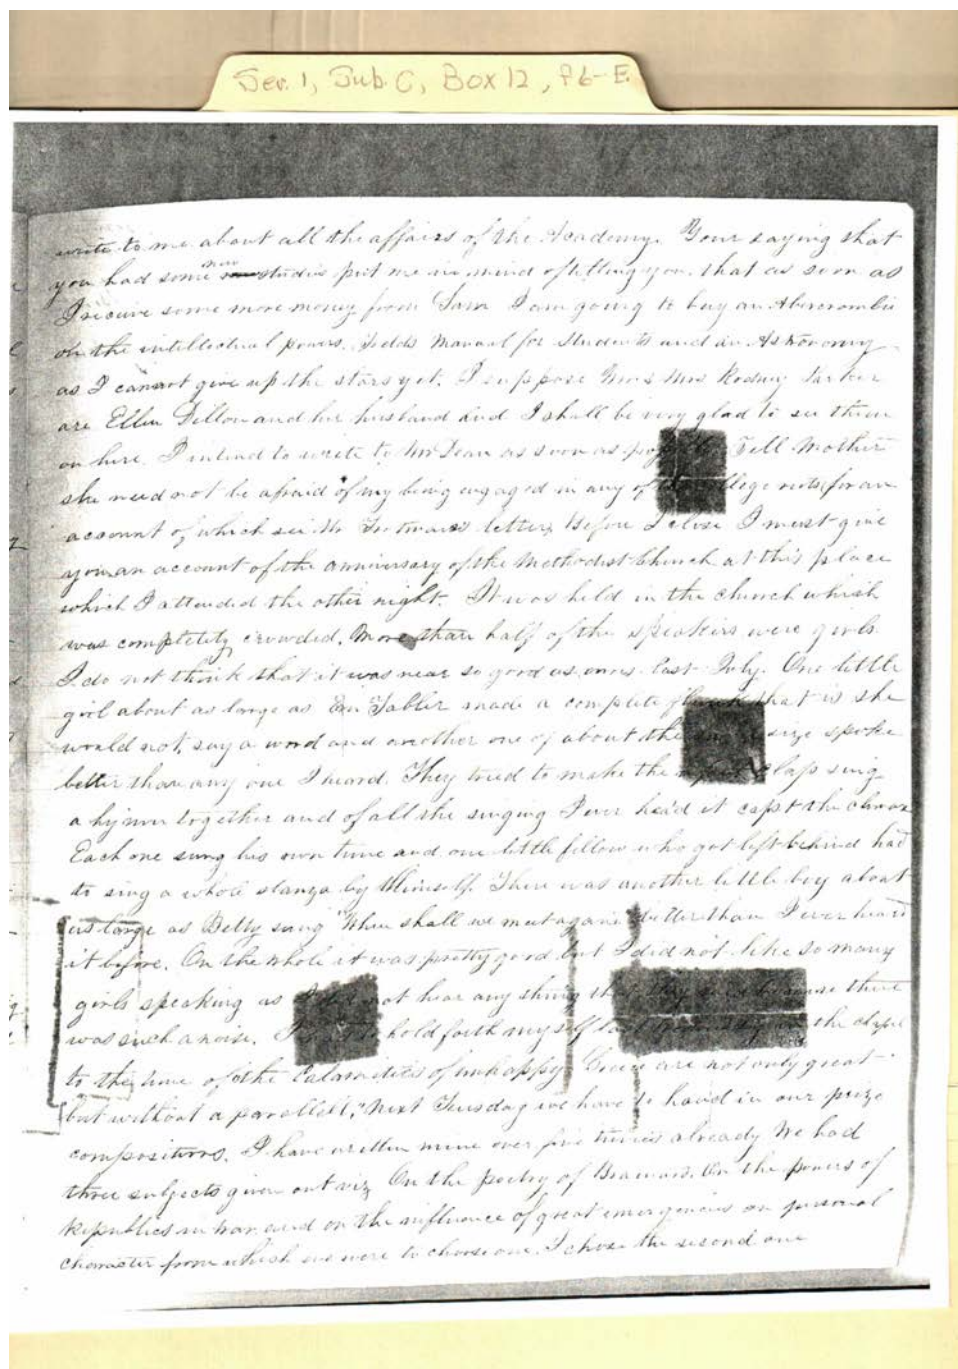 Ser. 1, Sub. C, Box 12, F6-E
write to me about all the affairs of the Academy. Your saying that
you had some new studies put me in mind of telling you that as soon as
I receive some more money from Sam I am going to buy an Abercrombie
on the intellectual powers. Todds Manual for Students and an Astronomy
as I cannot give up the stars yet. I suppose Mr & Mrs Rodney Parker
are Ellen Dillow and her husband and I shall be very glad to see them
on here. I intend to write to Mr Dean as soon as Tell Mother
she need not be afraid of my being engaged in any of riots for an
account of which see Mr letter. Before I close I must give
you an account of the anniversary of the Methodist Church at this place
which I attended the other night. It was held in the church which
was completely crowded. More than half of the speakers were girls.
I do not think that it was near so good as ours last July. One little
girl about as large as Em Tabler made a complete that is she
would not say a word and another one of about the size spoke
better than any one I heard. They tried to make the sing
a hymn together and of all the singing I ever heard it capt the climax
Each one sung his own tune and one little fellow who got left behind had
to sing a whole stanza by himself. There was another little boy about
as large as Betty sung "When shall we meet again" better than I ever heard
it before. On the whole it was pretty good but I did not like so many
girls speaking as not hear any thing because there
was such a noise. hold forth myself the chapel
to the tune of the "Calamities of unhappy Greece are not only great
but without a parallell." Next Tuesday we have to hand in our prize
compositions. I have written mine over five times already We had
three subjects given out viz On the poetry of . On the powers of
Republics in war and on the influence of great emergencies on personal
character from which we were to choose one. I chose the second one